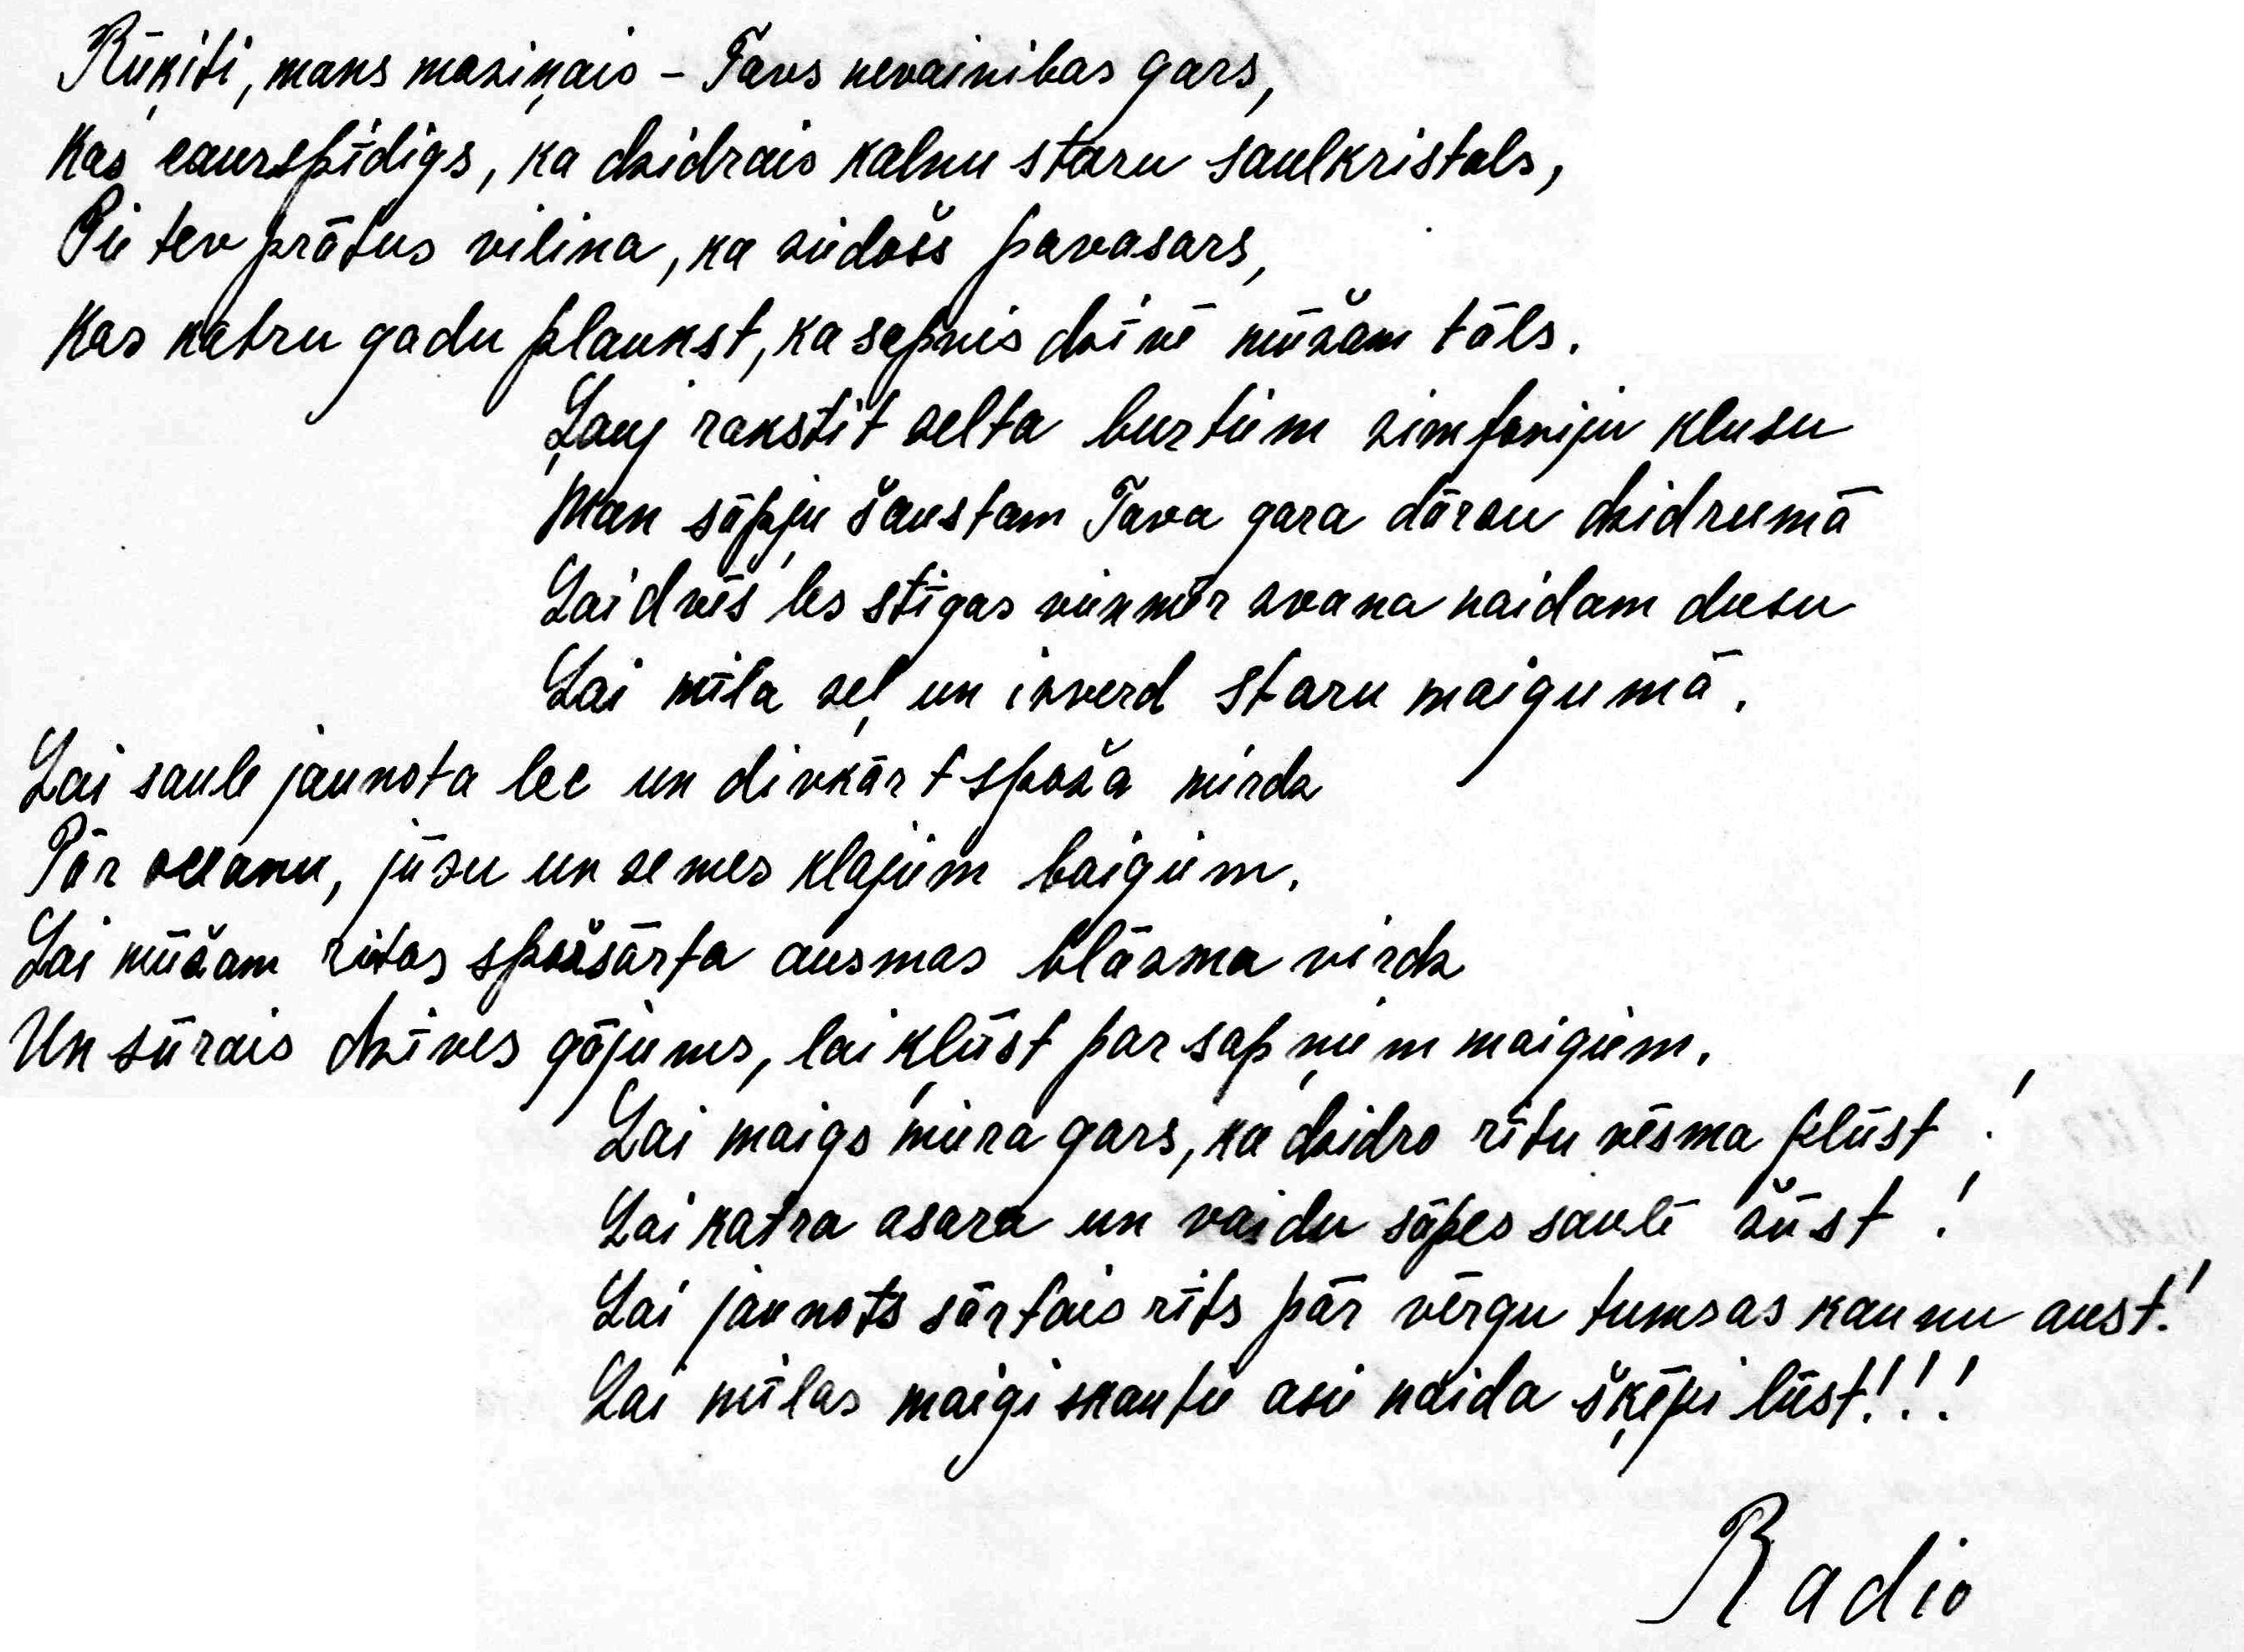 Rūķiti, mans maziņais – Tavs nevainibas gars,
Kas caurspīdigs, ka dzidrais kalnu staru saulkristals,
Pie tev prātus vilina, ka ziedošs pavasars,
Kas katru gadu plaukst, ka sapnis dzīvē mūžam tāls.
Ļauj rakstīt zelta burtiem simfoniju klusu
Man sāpju šaustam Tava gara dārzu dzidrumā
Lai dvēs'les stīgas vienmēr zvana naidam dusu
Lai mīla zeļ un izverd staru maigumā.
Lai saule jaunota lec un divkārt spoža mirdz
Pār oceanu, jūru un zemes klajiem baigiem.
Lai mūžam ritas spožsārta ausmas blāzma virdz
Un sūrais dzīves gājums, lai kļūst par sapņiem maigiem.
Lai maigs miera gars, ka dzidro rītu vēsma plūst!
Lai katra asara un vaidu sāpes saulē žūst!
Lai jaunots sārtais rīts pār vērgu tumsas kaunu aust!
Lai mīlas maigi skautie asie naida šķēpi lūst!!!
Radio